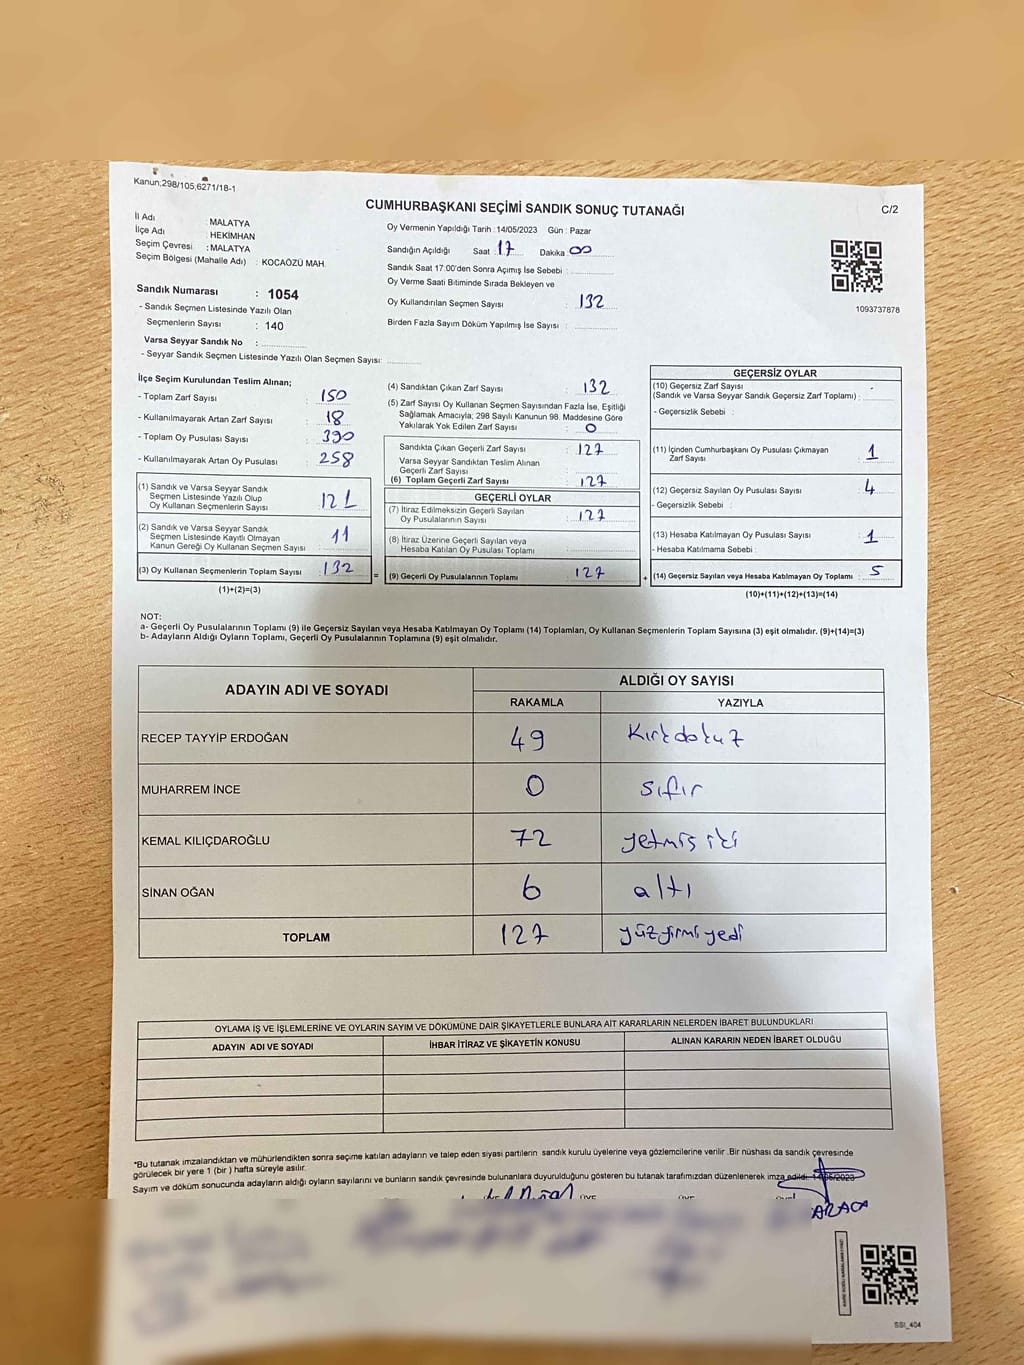 Kanun;298/105,6271/18-1
CUMHURBAŞKANI SEÇİMİ SANDIK SONUÇ TUTANAĞI
C/2
İl Adı : MALATYA
İlçe Adı : HEKİMHAN
Seçim Çevresi : MALATYA
Seçim Bölgesi (Mahalle Adı) : KOCAÖZÜ MAH.
Oy Vermenin Yapıldığı Tarih : 14/05/2023 Gün : Pazar
Sandığın Açıldığı Saat : 17 Dakika 00
Sandık Saat 17:00'den Sonra Açımış İse Sebebi :
Oy Verme Saati Bitiminde Sırada Bekleyen ve
Oy Kullandırılan Seçmen Sayısı : 132
Birden Fazla Sayım Döküm Yapılmış İse Sayısı :
1093737878
Sandık Numarası : 1054
- Sandık Seçmen Listesinde Yazılı Olan
Seçmenlerin Sayısı : 140
Varsa Seyyar Sandık No :
- Seyyar Sandık Seçmen Listesinde Yazılı Olan Seçmen Sayısı:
İlçe Seçim Kurulundan Teslim Alınan;
- Toplam Zarf Sayısı : 150
- Kullanılmayarak Artan Zarf Sayısı : 18
- Toplam Oy Pusulası Sayısı : 390
- Kullanılmayarak Artan Oy Pusulası : 258
(1) Sandık ve Varsa Seyyar Sandık
Seçmen Listesinde Yazılı Olup
Oy Kullanan Seçmenlerin Sayısı : 121
(2) Sandık ve Varsa Seyyar Sandık
Seçmen Listesinde Kayıtlı Olmayan
Kanun Gereği Oy Kullanan Seçmen Sayısı : 11
(3) Oy Kullanan Seçmenlerin Toplam Sayısı : 132
(1)+(2)=(3)
=
(4) Sandıktan Çıkan Zarf Sayısı : 132
(5) Zarf Sayısı Oy Kullanan Seçmen Sayısından Fazla İse, Eşitliği
Sağlamak Amacıyla; 298 Sayılı Kanunun 98. Maddesine Göre
Yakılarak Yok Edilen Zarf Sayısı : 0
Sandıkta Çıkan Geçerli Zarf Sayısı : 127
Varsa Seyyar Sandıktan Teslim Alınan
Geçerli Zarf Sayısı :
(6) Toplam Geçerli Zarf Sayısı : 127
GEÇERLİ OYLAR
(7) İtiraz Edilmeksizin Geçerli Sayılan
Oy Pusulalarının Sayısı : 127
(8) İtiraz Üzerine Geçerli Sayılan veya
Hesaba Katılan Oy Pusulası Toplamı :
(9) Geçerli Oy Pusulalarının Toplamı : 127
+
GEÇERSİZ OYLAR
(10) Geçersiz Zarf Sayısı
(Sandık ve Varsa Seyyar Sandık Geçersiz Zarf Toplamı) :
- Geçersizlik Sebebi :
(11) İçinden Cumhurbaşkanı Oy Pusulası Çıkmayan
Zarf Sayısı : 1
(12) Geçersiz Sayılan Oy Pusulası Sayısı : 4
- Geçersizlik Sebebi :
(13) Hesaba Katılmayan Oy Pusulası Sayısı : 1
- Hesaba Katılmama Sebebi :
(14) Geçersiz Sayılan veya Hesaba Katılmayan Oy Toplamı : 5
(10)+(11)+(12)+(13)=(14)
NOT:
a- Geçerli Oy Pusulalarının Toplamı (9) ile Geçersiz Sayılan veya Hesaba Katılmayan Oy Toplamı (14) Toplamları, Oy Kullanan Seçmenlerin Toplam Sayısına (3) eşit olmalıdır. (9)+(14)=(3)
b- Adayların Aldığı Oyların Toplamı, Geçerli Oy Pusulalarının Toplamına (9) eşit olmalıdır.
ADAYIN ADI VE SOYADI
ALDIĞI OY SAYISI
RAKAMLA YAZIYLA
RECEP TAYYİP ERDOĞAN 49 Kırkdokuz
MUHARREM İNCE 0 sıfır
KEMAL KILIÇDAROĞLU 72 yetmiş iki
SİNAN OĞAN 6 altı
TOPLAM 127 yüzyirmi yedi
OYLAMA İŞ VE İŞLEMLERİNE VE OYLARIN SAYIM VE DÖKÜMÜNE DAİR ŞİKAYETLERLE BUNLARA AİT KARARLARIN NELERDEN İBARET BULUNDUKLARI
ADAYIN ADI VE SOYADI İHBAR İTİRAZ VE ŞİKAYETİN KONUSU ALINAN KARARIN NEDEN İBARET OLDUĞU
*Bu tutanak imzalandıktan ve mühürlendikten sonra seçime katılan adayların ve talep eden siyasi partilerin sandık kurulu üyelerine veya gözlemcilerine verilir .Bir nüshası da sandık çevresinde
görülecek bir yere 1 (bir ) hafta süreyle asılır.
Sayım ve döküm sonucunda adayların aldığı oyların sayılarını ve bunların sandık çevresinde bulunanlara duyurulduğunu gösteren bu tutanak tarafımızdan düzenlenerek imza edildi. 14/05/2023
SSI_404